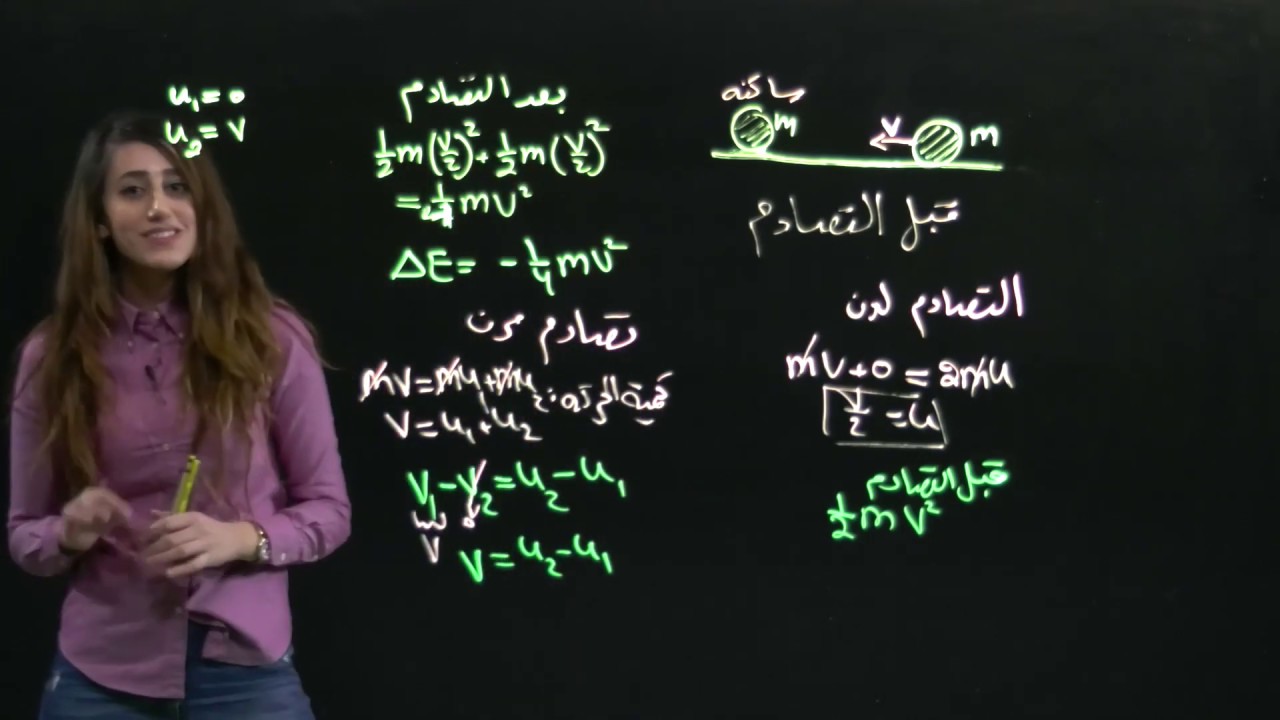 ساكنه
m
v
m
قبل التصادم
التصادم لدن
mv + 0 = 2mu
v/2 = u
قبل التصادم
1/2 m v²
بعد التصادم
1/2 m (v/2)² + 1/2 m (v/2)²
= 1/4 m v²
ΔE = - 1/4 m v²
تصادم مرن
كمية الحركة: mv = mu₁ + mu₂
v = u₁ + u₂
v₁ - v₂ = u₂ - u₁
v 0
v = u₂ - u₁
u₁ = 0
u₂ = v